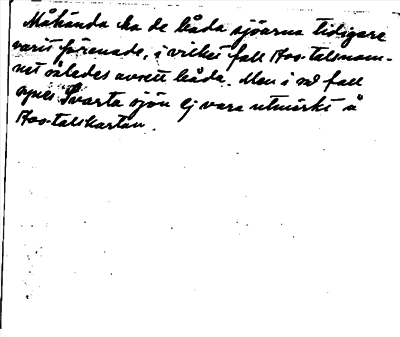 Måhända ha de båda sjöarna tidigare
varit förenade, i vilket fall 1700-talsnam-
net således avsett båda. Men i så fall
synes Svarta sjön ej vara utmärkt å
1700-talskartan.